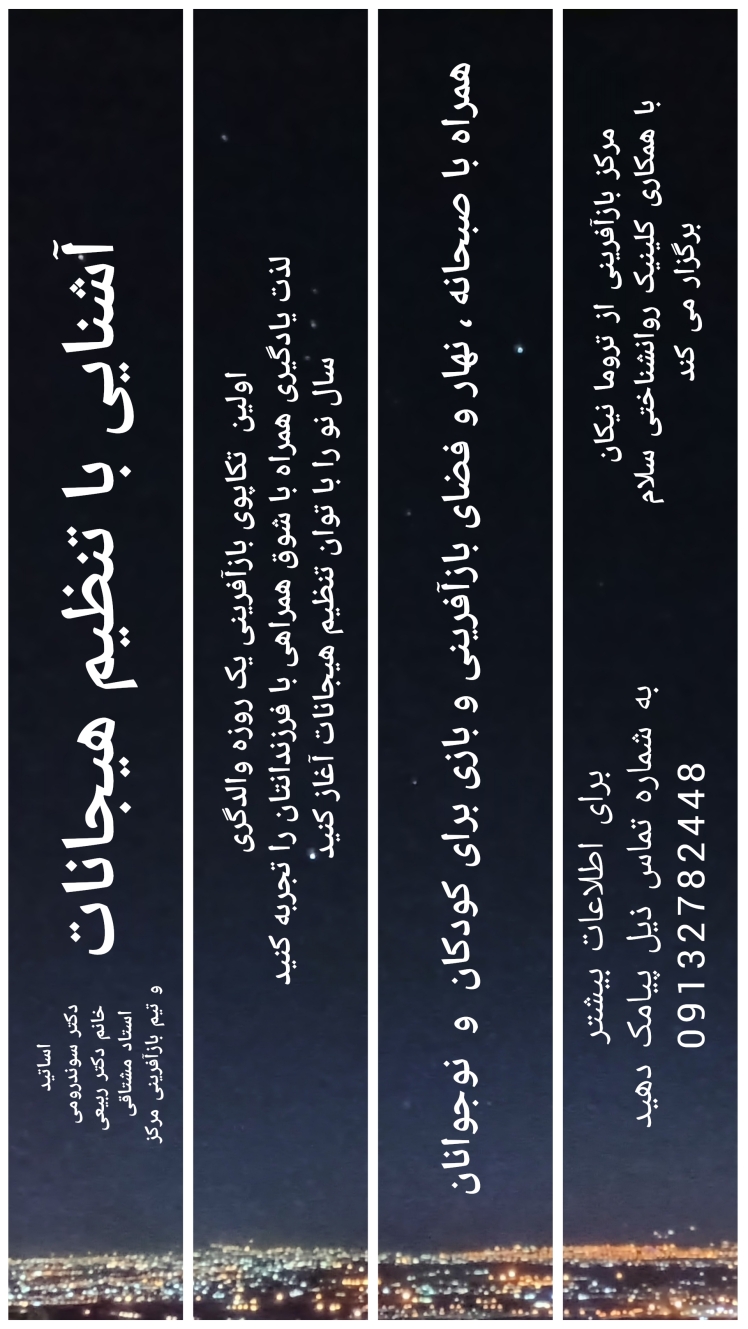 آشنایی با تنظیم هیجانات
اساتید
دکتر سوندرومی
خانم دکتر ربیعی
استاد مشتاقی
و تیم بازآفرینی مرکز
اولین تکاپوی بازآفرینی یک روزه والدگری
لذت یادگیری همراه با شوق همراهی با فرزندانتان را تجربه کنید
سال نو را با توان تنظیم هیجانات آغاز کنید
همراه با صبحانه ، نهار و فضای بازآفرینی و بازی برای کودکان و نوجوانان
مرکز بازآفرینی از تروما نیکان
با همکاری کلینیک روانشناختی سلام
برگزار می کند
برای اطلاعات بیشتر
به شماره تماس ذیل پیامک دهید
09132782448